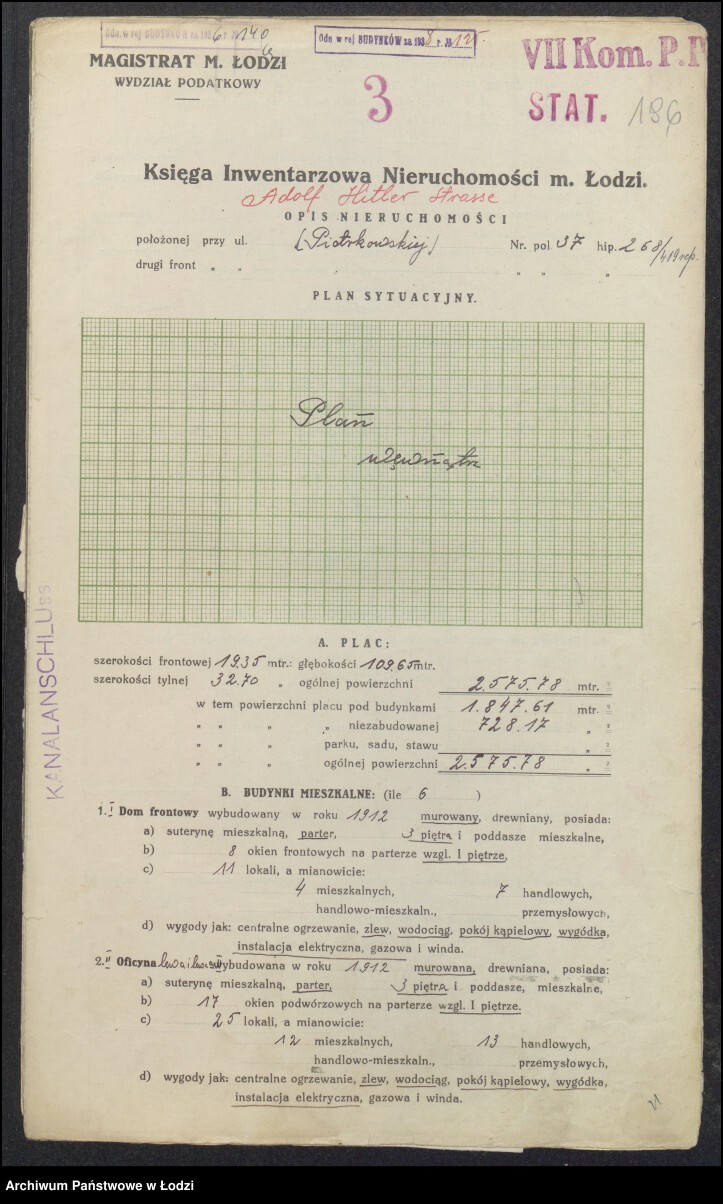 Odn. w rej BUDYNKÓW za 1936 r. № 140
Odn. w rej BUDYNKÓW za 1938 r. № 125.
MAGISTRAT M. ŁODZI
WYDZIAŁ PODATKOWY
VII Kom. P.P
3
STAT. 186
Księga Inwentarzowa Nieruchomości m. Łodzi.
Adolf Hitler Strasse
OPIS NIERUCHOMOŚCI
położonej przy ul. (Piotrkowskiej) Nr. pol. 37 hip. 268/419 rep.
drugi front „ „ „ „ „
PLAN SYTUACYJNY.
Plan
wewnątrz
KANALANSCHLUSS
A. PLAC:
szerokości frontowej 19.35 mtr.: głębokości 109.65 mtr.
szerokości tylnej 32.70 „ ogólnej powierzchni 2.575.78 mtr. ²
w tem powierzchni placu pod budynkami 1.847.61 mtr. ²
„ „ „ „ niezabudowanej 728.17 „ ²
„ „ „ parku, sadu, stawu „ ²
„ „ „ ogólnej powierzchni 2.575.78 „ ²
B. BUDYNKI MIESZKALNE: (ile 6 )
1. I Dom frontowy wybudowany w roku 1912 murowany, drewniany, posiada:
a) suterynę mieszkalną, parter, 3 piętra i poddasze mieszkalne,
b) 8 okien frontowych na parterze wzgl. I piętrze,
c) 11 lokali, a mianowicie:
4 mieszkalnych, 7 handlowych,
handlowo-mieszkaln., przemysłowych,
d) wygody jak: centralne ogrzewanie, zlew, wodociąg, pokój kąpielowy, wygódka,
instalacja elektryczna, gazowa i winda.
2. II Oficyna lewa i wybudowana w roku 1912 murowana, drewniana, posiada:
a) suterynę mieszkalną, parter, 3 piętra i poddasze, mieszkalne,
b) 17 okien podwórzowych na parterze wzgl. I piętrze.
c) 25 lokali, a mianowicie:
12 mieszkalnych, 13 handlowych,
handlowo-mieszkaln., przemysłowych,
d) wygody jak: centralne ogrzewanie, zlew, wodociąg, pokój kąpielowy, wygódka,
instalacja elektryczna, gazowa i winda.
Archiwum Państwowe w Łodzi